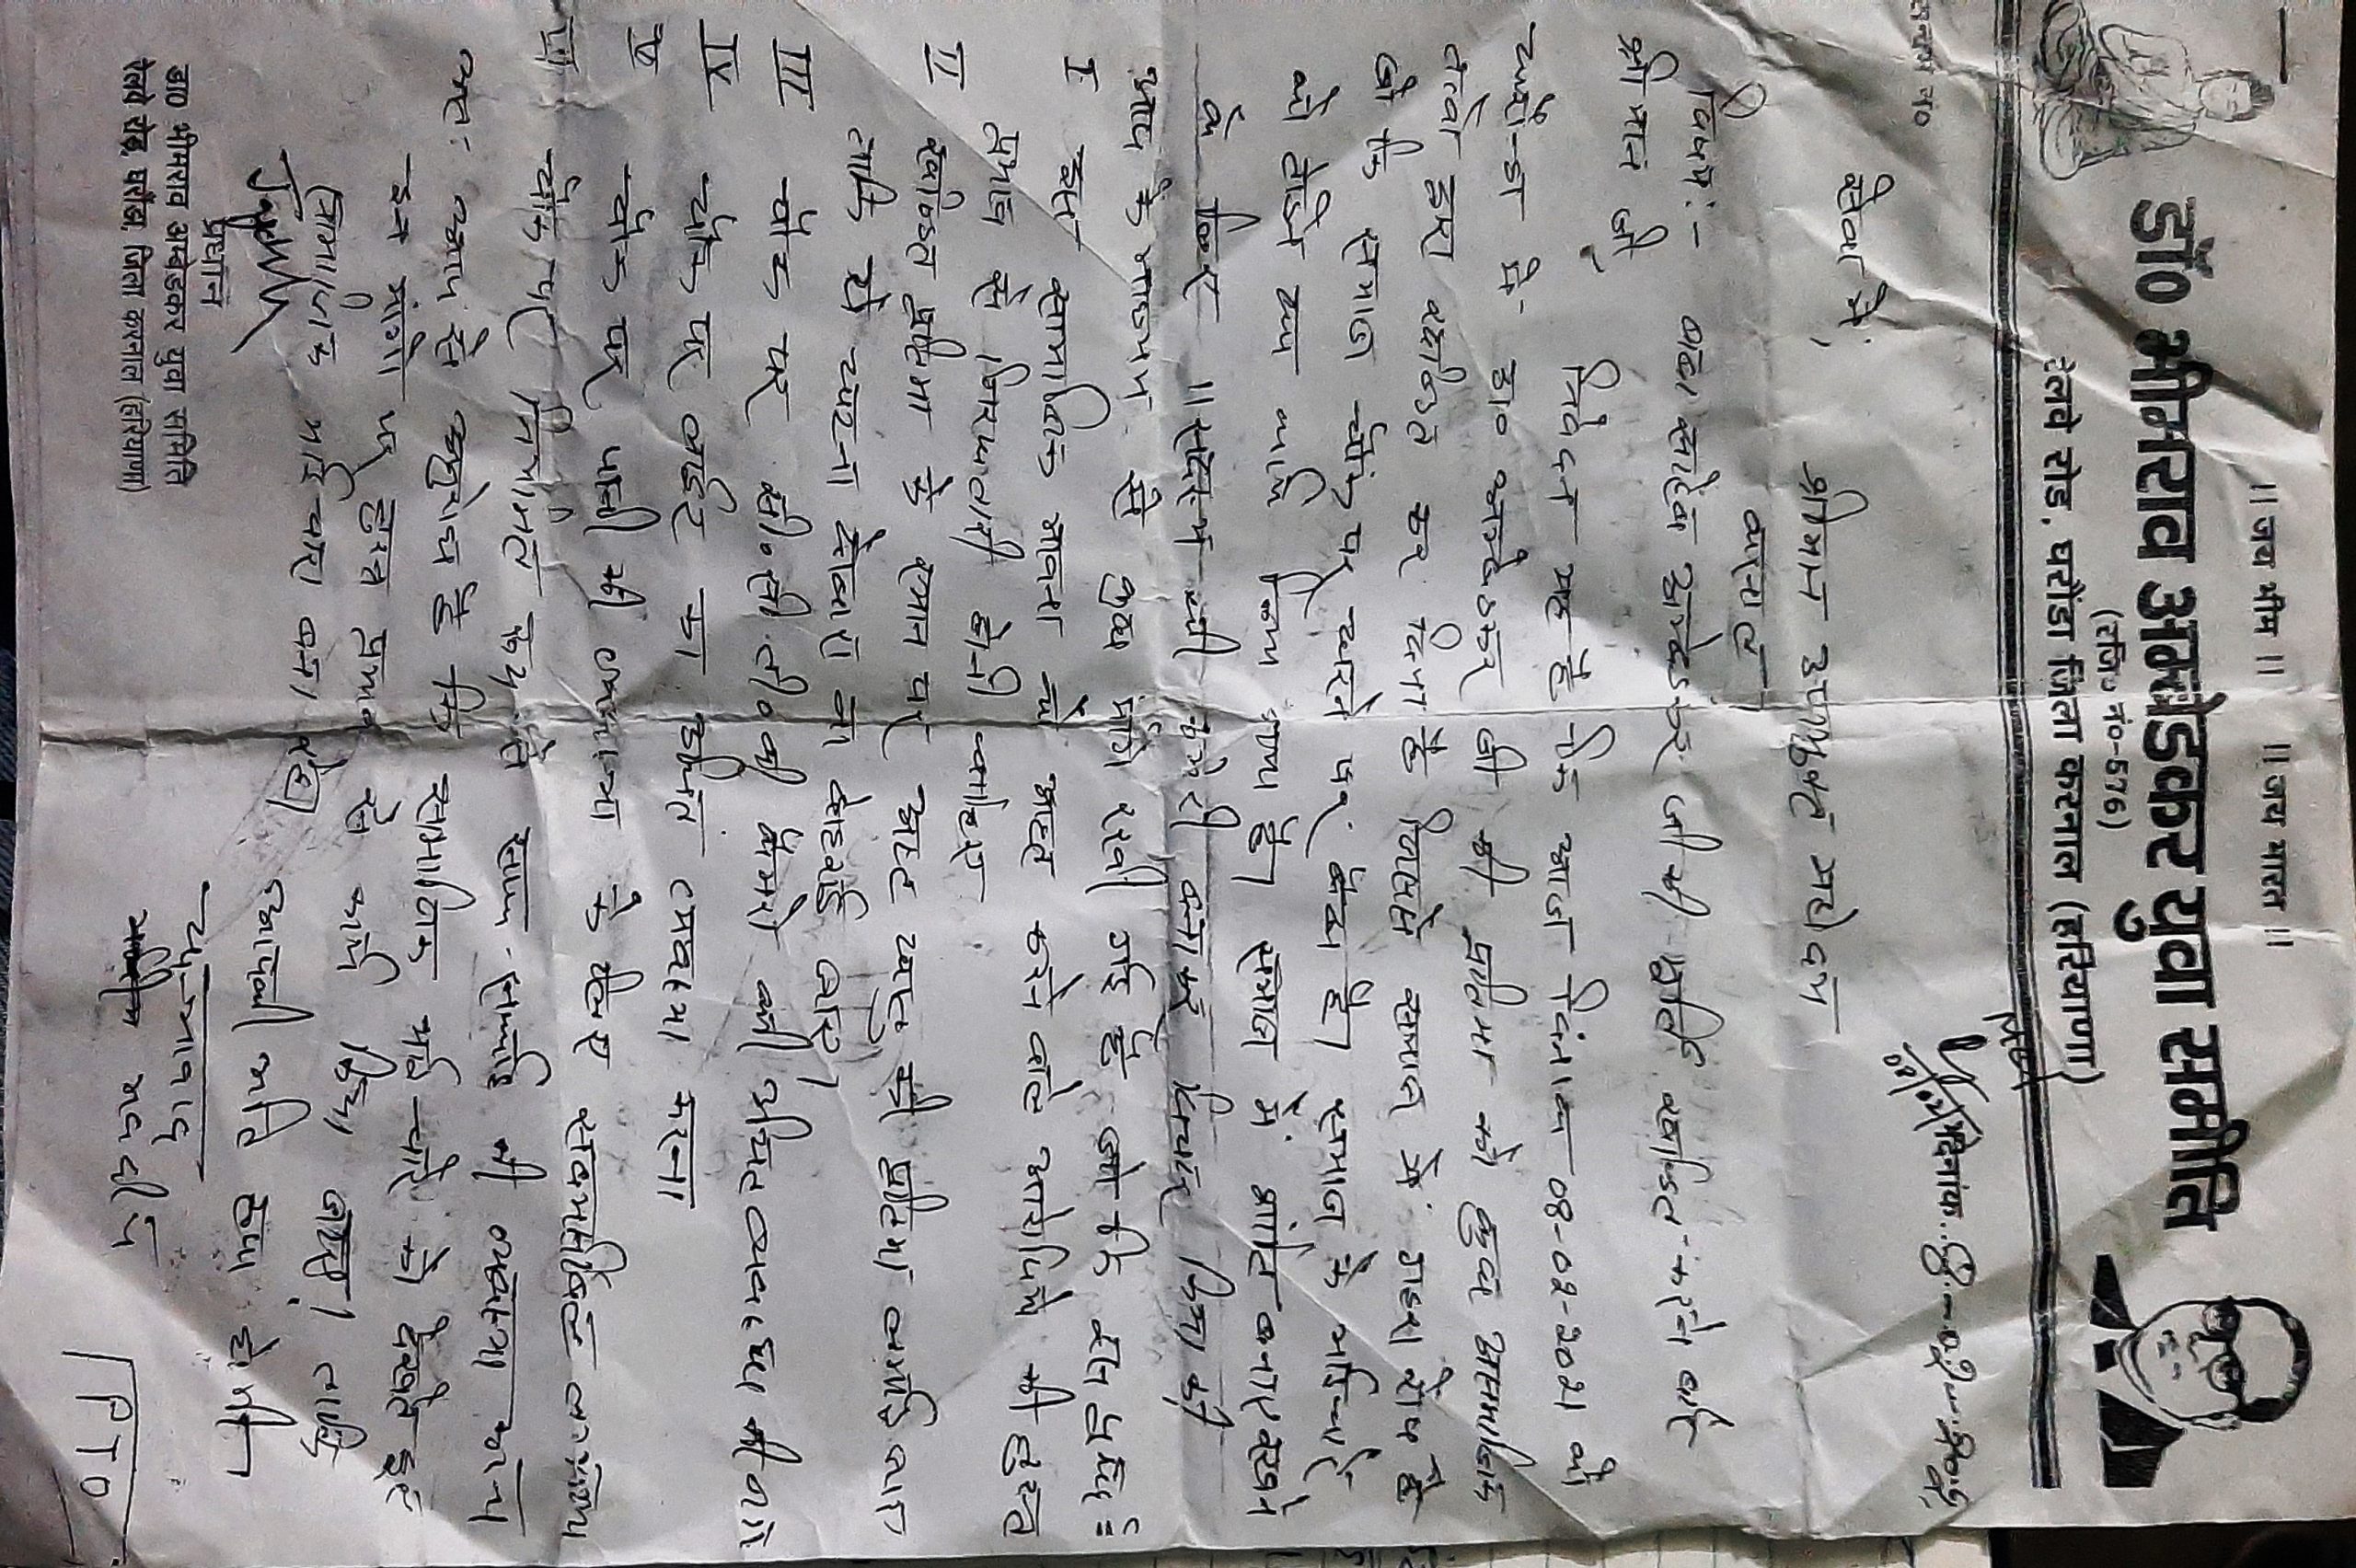 ।। जय भीम ।। ।। जय भारत ।।
डॉ० भीमराव अम्बेडकर युवा समीति
(रजि० नं०-576)
रेलवे रोड, घरोंडा जिला करनाल (हरियाणा)
क्रमांक नं० दिनांक
सेवा में,
श्रीमान उपायुक्त महोदय
करनाल
विषय:- बाबा साहेब अम्बेडकर जी की मूर्ति खण्डित करने बारे
श्री मान जी,
निवेदन यह है कि आज दिनांक 08-02-2021 को
घरौंडा में डा० अम्बेडकर जी की प्रतिमा को कुछ असामाजिक
तत्वों द्वारा खण्डित कर दिया है जिससे समाज में गहरा रोष है
जो कि समाज चौंक पर धरने पर बैठा है। समाज के भाईचारे
को तोडने का काम किया गया है। समाज में शांति बनाए रखने
के लिए 11 सदस्यों की कमेटी बनाकर विचार किया की
आप के माध्यम से कुछ मांगे रखी गई है जो कि इस प्रकार है:
I इस सामाजिक भावना को आहत करने वाले आरोपियों की तुरन्त
प्रभाव से गिरफ्तारी होनी चाहिए
II खण्डित प्रतिमा के स्थान पर अष्ट धातु की प्रतिमा लगाई जाए
ताकि ये घटना दोबारा ना दोहराई जाए।
III चौंक पर सी.सी.टी.वी कैमरे की उचित व्यवस्था की जाए
IV चौंक पर लाईट का उचित व्यवस्था करना
V चौंक पर पानी की व्यवस्था के लिए सबमर्सिबल लगवाया
VI चौंक पर नियमित रूप से साफ-सफाई की व्यवस्था करना
अत: आप से अनुरोध है कि सामाजिक भाई-चारे को देखते हुए
इन मांगो पर तुरन्त प्रभाव से गौर किया जाए। ताकि
सामाजिक भाई-चारा बना रहे। आपकी अति कृपा होगी।
धन्यवाद
प्रधान
डा० भीमराव अम्बेडकर युवा समिति
रेलवे रोड, घरौंडा, जिला करनाल (हरियाणा)
PTO